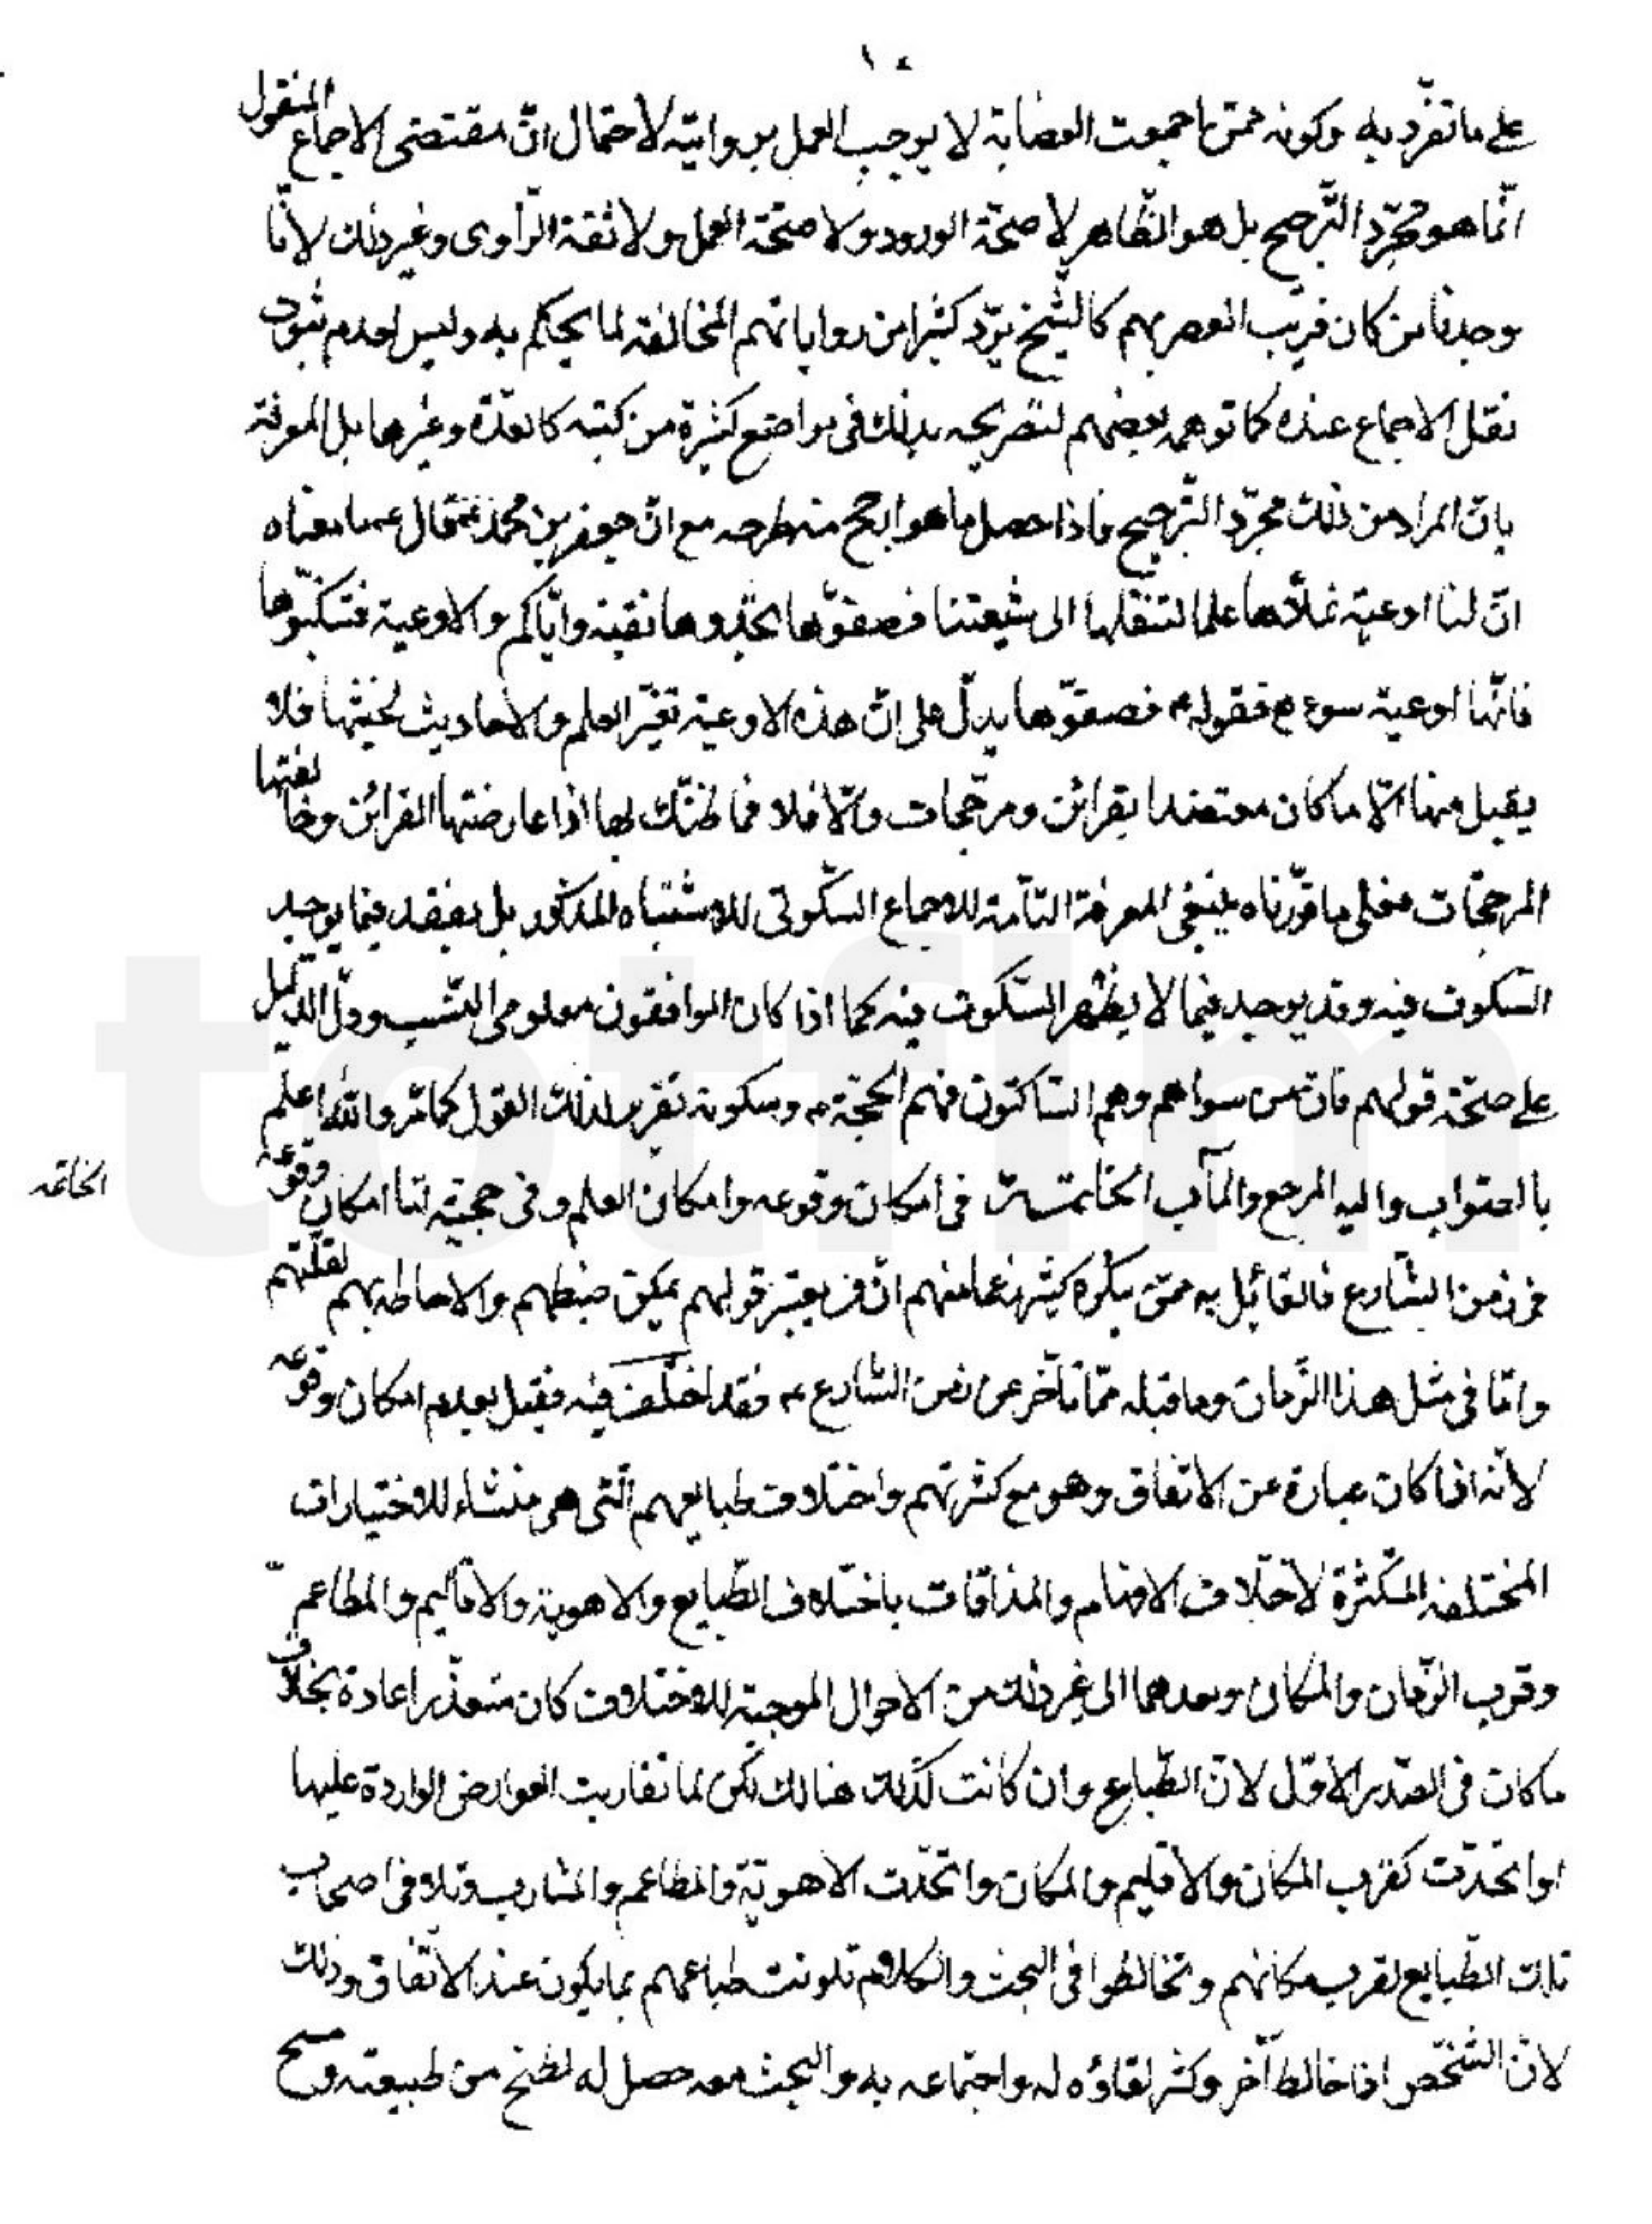 ١٤
على ما تفرّد به وكونه ممّن اجمعت العصابة لا يوجب العمل بروايته لاحتمال انّ مقتضى الاجماع المنقول
انّما هو مجرّد التّرجيح بل هو الظّاهر لا صحّة الورود ولا صحّة العمل ولا ثقة الرّاوى وغير ذلك لانّا
وجدنا من كان قريب العصر بهم كالشّيخ يردّ كثيرا من رواياتهم المخالفة لما يحكم به وليس لعدم ثبوت
نقل الاجماع عنده كما توهمه بعضهم لتصريحه بذلك فى مواضع كثيرة من كتبه كالعدّة وغيرها بل المعرفته
بانّ المراد من ذلك مجرّد التّرجيح فاذا حصل ما هو ارجح منه طرحه مع انّ جعفر بن محمد ع قال عما معناه
انّ لنا اوعية نملأها علما لتنقلها الى شيعتنا فصفّوها تجدوها نقيّة وايّاكم والاوعية فتنكّبوها
فانّها اوعية سوء ع فقوله ع فصفّوها يدلّ على انّ هذه الاوعية تغيّر العلم والاحاديث لخبثها فلا
يقبل منها الّا ما كان معتضدا بقرائن ومرجّحات والّا فلا فما ظنّك بها اذا عارضتها القرائن وخالفتها
المرجّحات فعلى ما قرّرناه ينبغى المعرفة التّامة للاجماع السّكوتى للاشتباه المذكور بل يفقد فيما يوجد
السّكوت فيه وقد يوجد فيما لا يظهر السّكوت فيه كما اذا كان الموافقون معلومى النّسب ودلّ الدّليل
على صحّة قولهم فانّ من سواهم وهم السّاكتون فهم الحجّة ع وسكوته تقرير لذلك القول كما مرّ والله اعلم
بالصّواب واليه المرجع والمآب الخاتمة فى امكان وقوعه وامكان العلم وفى حجيّته لنا امكان وقوعه
الخاتمه
من الشّارع فالقائل به ممّن يكره كثير منهم انّ من يعتبر قولهم يمكن ضبطهم والاحاطة بهم لقلّتهم
وامّا فى مثل هذا الزّمان وما قبله ممّا تأخّر عن زمن الشّارع ع فقد اختلف فيه فقيل بعدم امكان وقوعه
لانّه اذا كان عبارة عن الاتّفاق وهو مع كثرتهم واختلاف طبايعهم الّتى هى منشاء للاختيارات
المختلفة المتكثّرة لاختلاف الافهام والمذاقات باختلاف الطّبايع والاهوية والاقاليم والمطاعم
وقرب الزّمان والمكان وبعدهما الى غير ذلك من الاحوال الموجبة للاختلاف كان متعذّرا عادة بخلاف
ما كان فى الصّدر الاوّل لانّ الطّبايع وان كانت كذلك هنالك لكن لما تقاربت العوارض الواردة عليها
او اتّحدت كقرب المكان والاقليم والمكان واتّحدت الاهويّة والمطاعم والمشارب وتلاقى اصحاب
تلك الطّبايع لقرب مكانهم وتخالطوا فى البحث والكلام تلونت طباعهم بما يكون عند الاتّفاق وذلك
لانّ الشّخص اذا خالط آخر وكثر لقاؤه له واجتماعه به والبحث معه حصل له لطخ من طبيعته ومسح